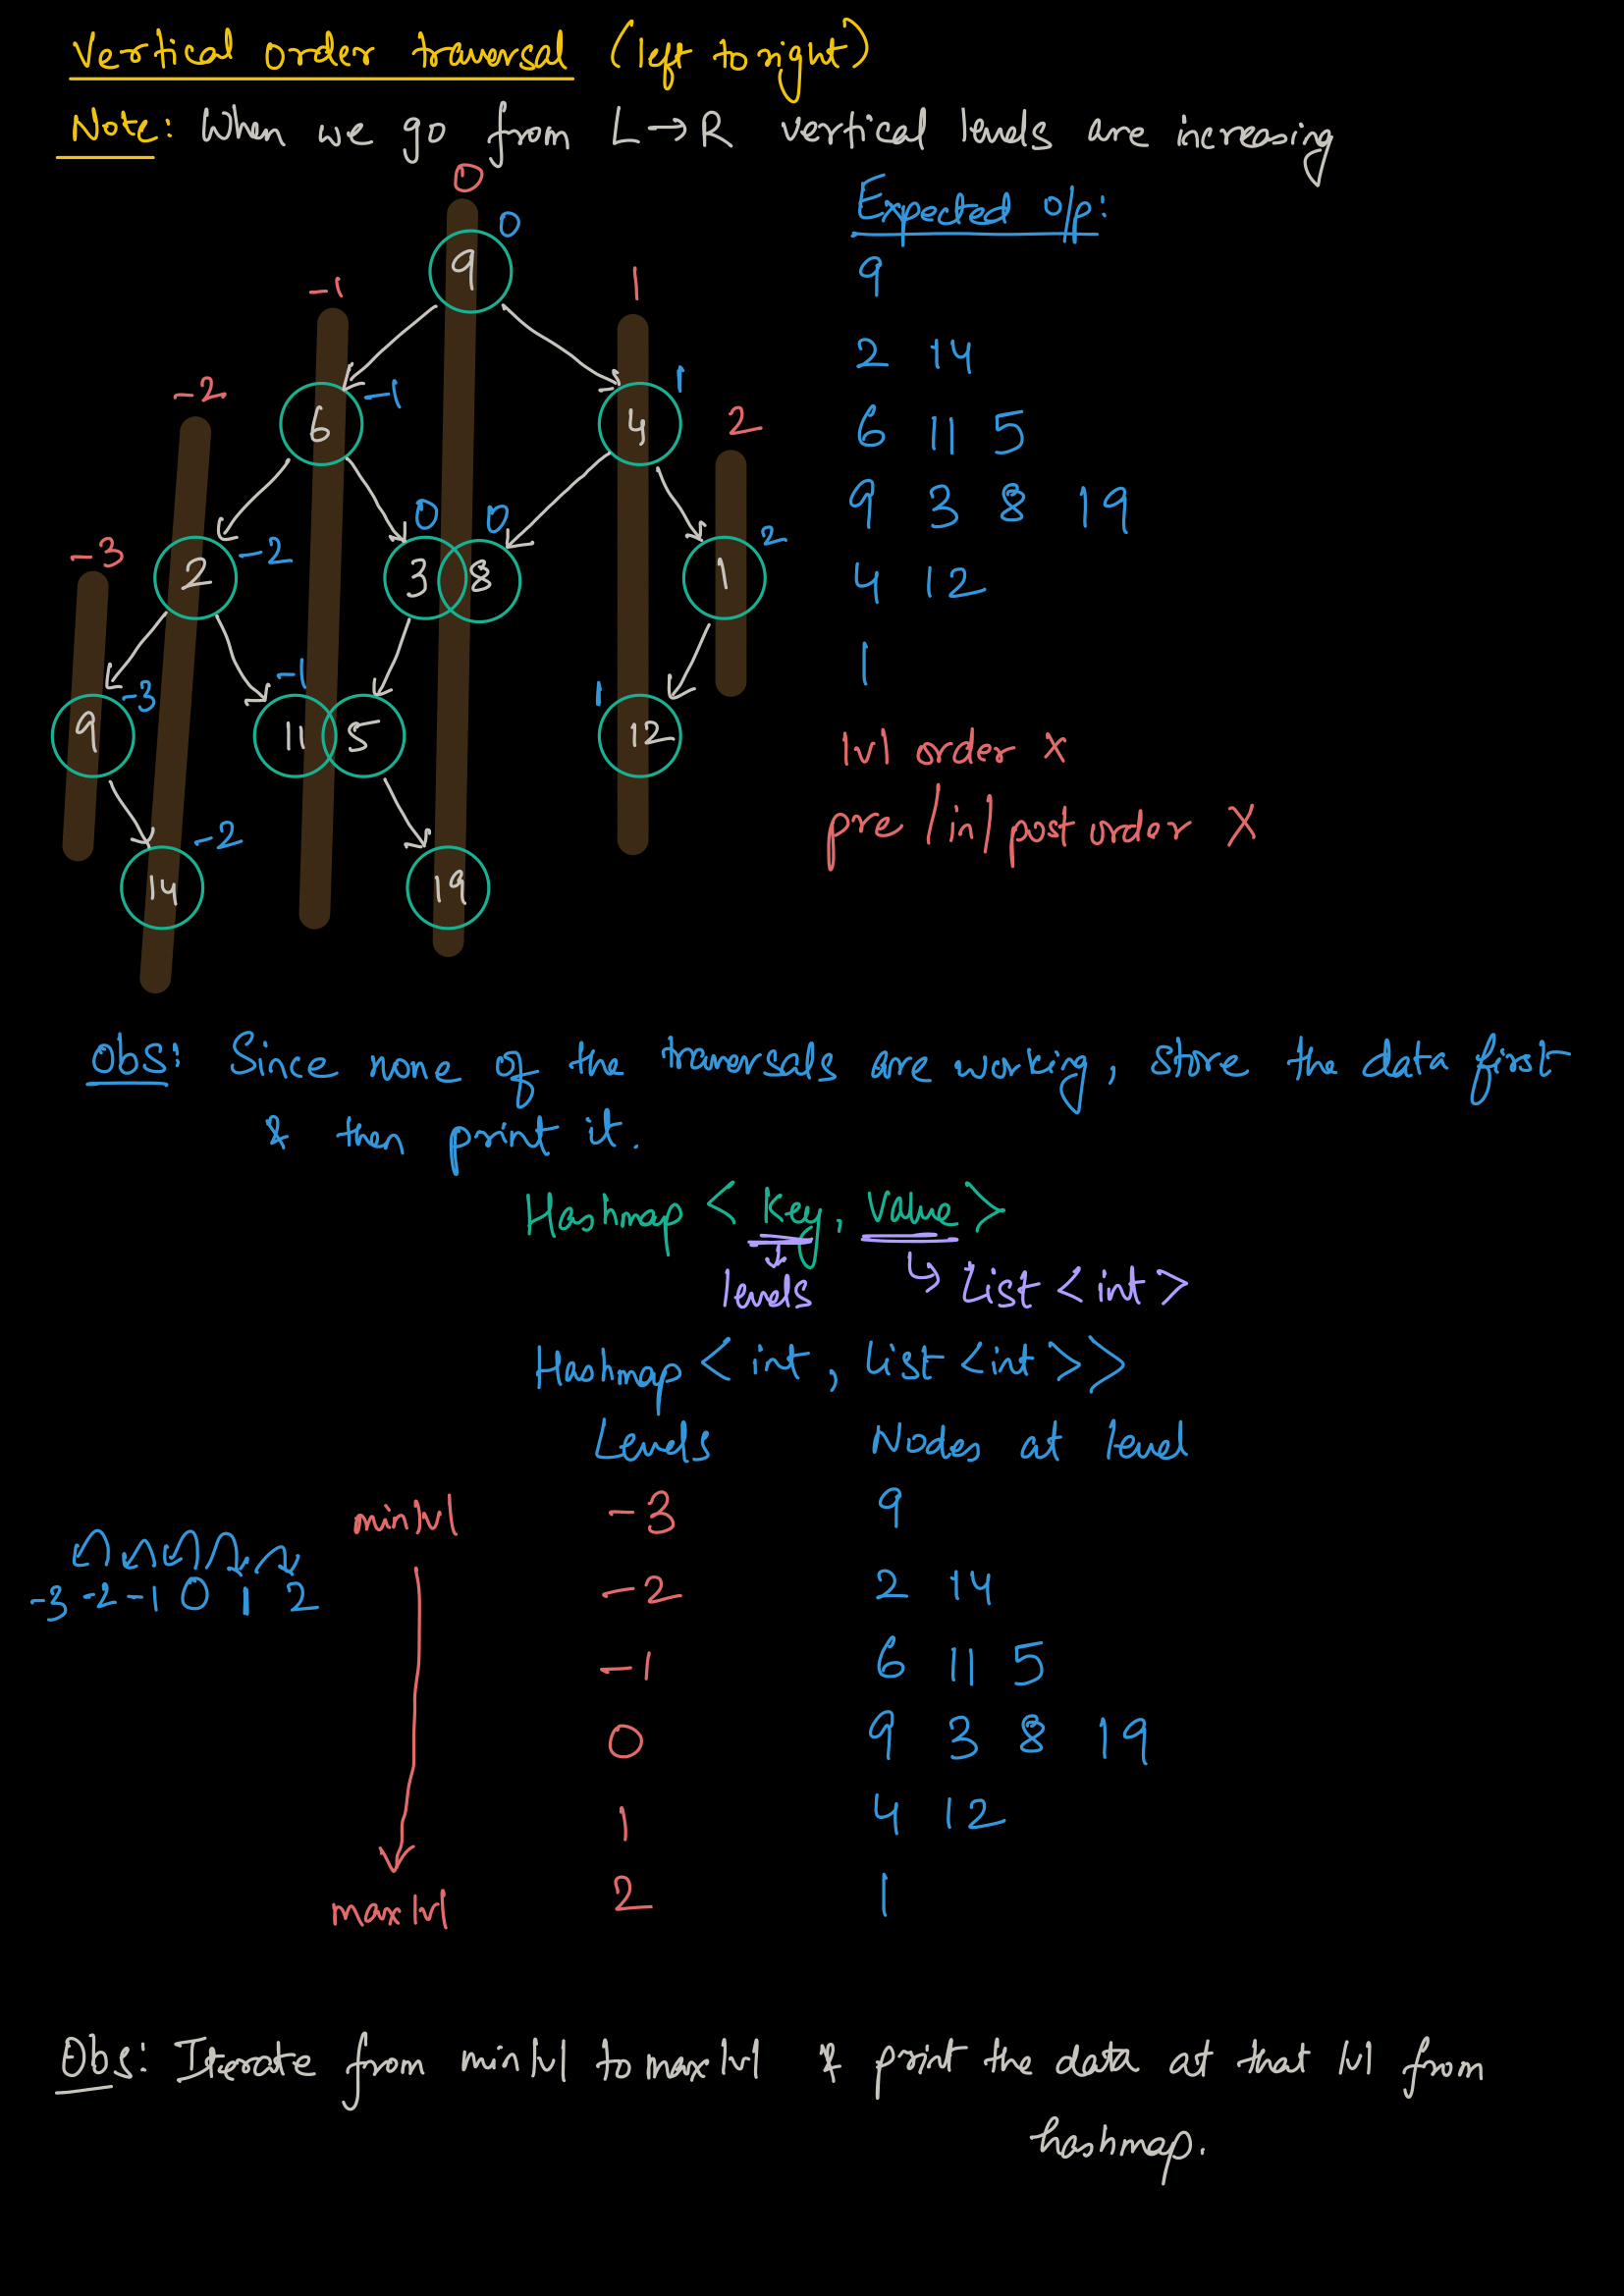 Vertical order traversal (left to right)
Note: When we go from L→R vertical levels are increasing
0
9 0
-1
1
6 -1
4 1
-2
2
2 -2
0 0
3 8
1 2
-3
9 -3
-1
11 5
1
12
14 -2
19
Expected o/p:
9
2 14
6 11 5
9 3 8 19
4 12
1
lvl order x
pre/in/post order X
Obs: Since none of the traversals are working, store the data first
& then print it.
Hashmap < key, value >
levels ↳ List < int >
Hashmap < int, List <int >>
Levels Nodes at level
minlvl -3 9
-2 2 14
-1 6 11 5
0 9 3 8 19
1 4 12
maxlvl 2 1
-3 -2 -1 0 1 2
Obs: Iterate from minlvl to maxlvl & print the data at that lvl from
hashmap.